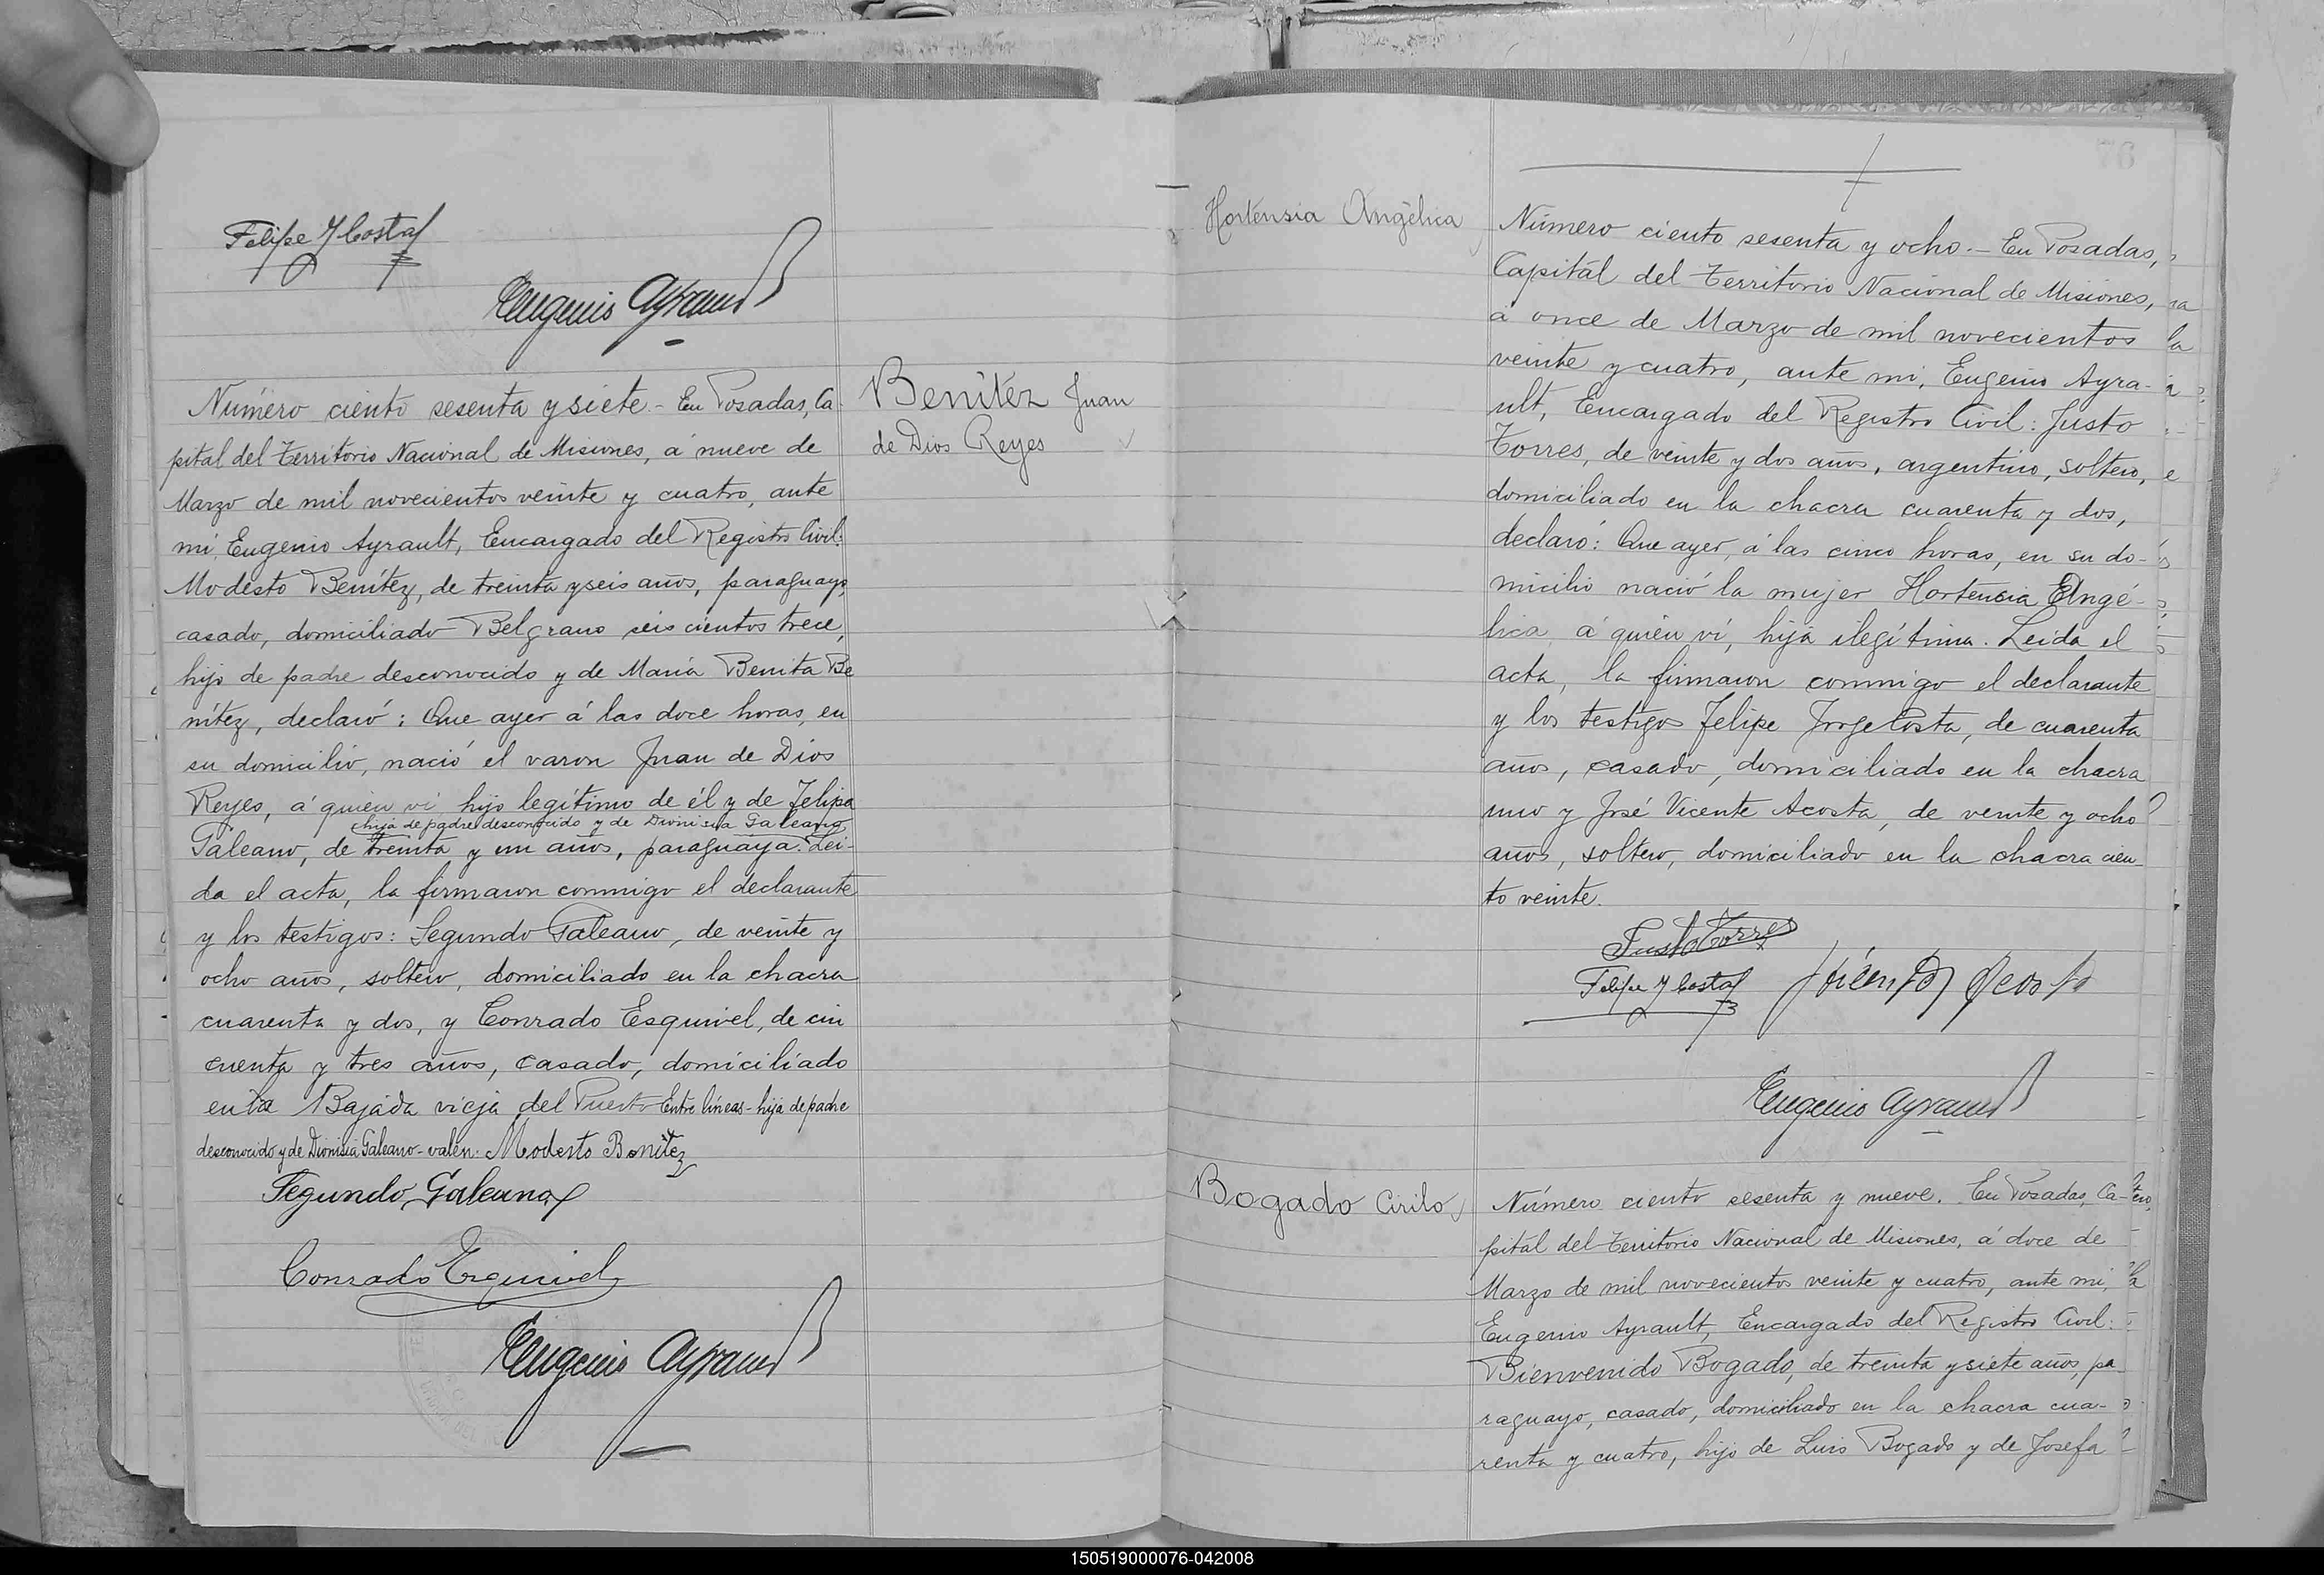 Felipe J Costa
Eugenio Ayrault
Número ciento sesenta y siete.- En Posadas, Ca-
pital del Territorio Nacional de Misiones, á nueve de
Marzo de mil novecientos veinte y cuatro, ante
mi, Eugenio Ayrault, Encargado del Registro Civil:
Modesto Benítez, de treinta y seis años, paraguayo,
casado, domiciliado Belgrano seiscientos trece,
hijo de padre desconocido y de María Benita Be
nítez, declaró: Que ayer á las doce horas, en
su domicilio, nació el varon Juan de Dios
Reyes, á quien ví hijo legítimo de él y de Felipa
hija de padre desconocido y de Dionisia Galeano
Galeano, de treinta y un años, paraguaya. Leí-
da el acta, la firmaron conmigo el declarante
y los testigos: Segundo Galeano, de veinte y
ocho años, soltero, domiciliado en la chacra
cuarenta y dos, y Conrado Esquivel, de cin
cuenta y tres años, casado, domiciliado
en la Bajáda vieja del Puerto Entre líneas-hija de padre
desconocido y de Dionisia Galeano-valen. Modesto Benitez
Segundo Galeano
Conrado Esquivel
Eugenio Ayrault
Benítez Juan
de Dios Reyes
76
Hortensia Angélica
Número ciento sesenta y ocho.- En Posadas,
Capitál del Territorio Nacional de Misiones,
á once de Marzo de mil novecientos
veinte y cuatro, ante mi, Eugenio Ayra-
ult, Encargado del Registro Civil: Justo
Torres, de veinte y dos años, argentino, soltero,
domiciliado en la chacra cuarenta y dos,
declaró: Que ayer, á las cinco horas, en su do-
micilio nació la mujer Hortensia Angé-
lica, á quien ví, hija ilegítima. Leída el
acta, la firmaron conmigo el declarante
y los testigos Felipe Jorge Costa, de cuarenta
años, casado, domiciliado en la chacra
uno y José Vicente Acosta, de veinte y ocho
años, soltero, domiciliado en la chacra cien-
to veinte.
Justo Torres
Felipe J Costa
J Vicente Acosta
Eugenio Ayrault
Bogado Cirilo
Número ciento sesenta y nueve. En Posadas, Ca-
pitál del Territorio Nacional de Misiones, á doce de
Marzo de mil novecientos veinte y cuatro, ante mi,
Eugenio Ayrault, Encargado del Registro Civil:
Bienvenido Bogado, de treinta y siete años, pa-
raguayo, casado, domiciliado en la chacra cua-
renta y cuatro, hijo de Luis Bogado y de Josefa
150519000076-042008